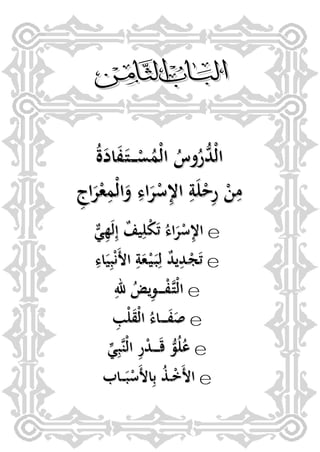 البَابُ الثَّامِنُ
الْدُّرُوسُ الْمُسْـتَـفَادَةُ
مِنْ رِحْلَةِ الإِسْرَاءِ وَالْمِعْرَاجِ
الإِسْرَاءُ تَكْلِيفٌ إِلَهِيٌّ
تَجْدِيدٌ لِبَيْعَةِ الأَنْبِيَاءِ
الْتَّفْـوِيضُ لِلهِ
صَفَـاءُ الْقَلْبِ
عُلُوُّ قَـدْرِ الْنَّبِيِّ
الأَخْـذُ بِالأَسْبَـاب